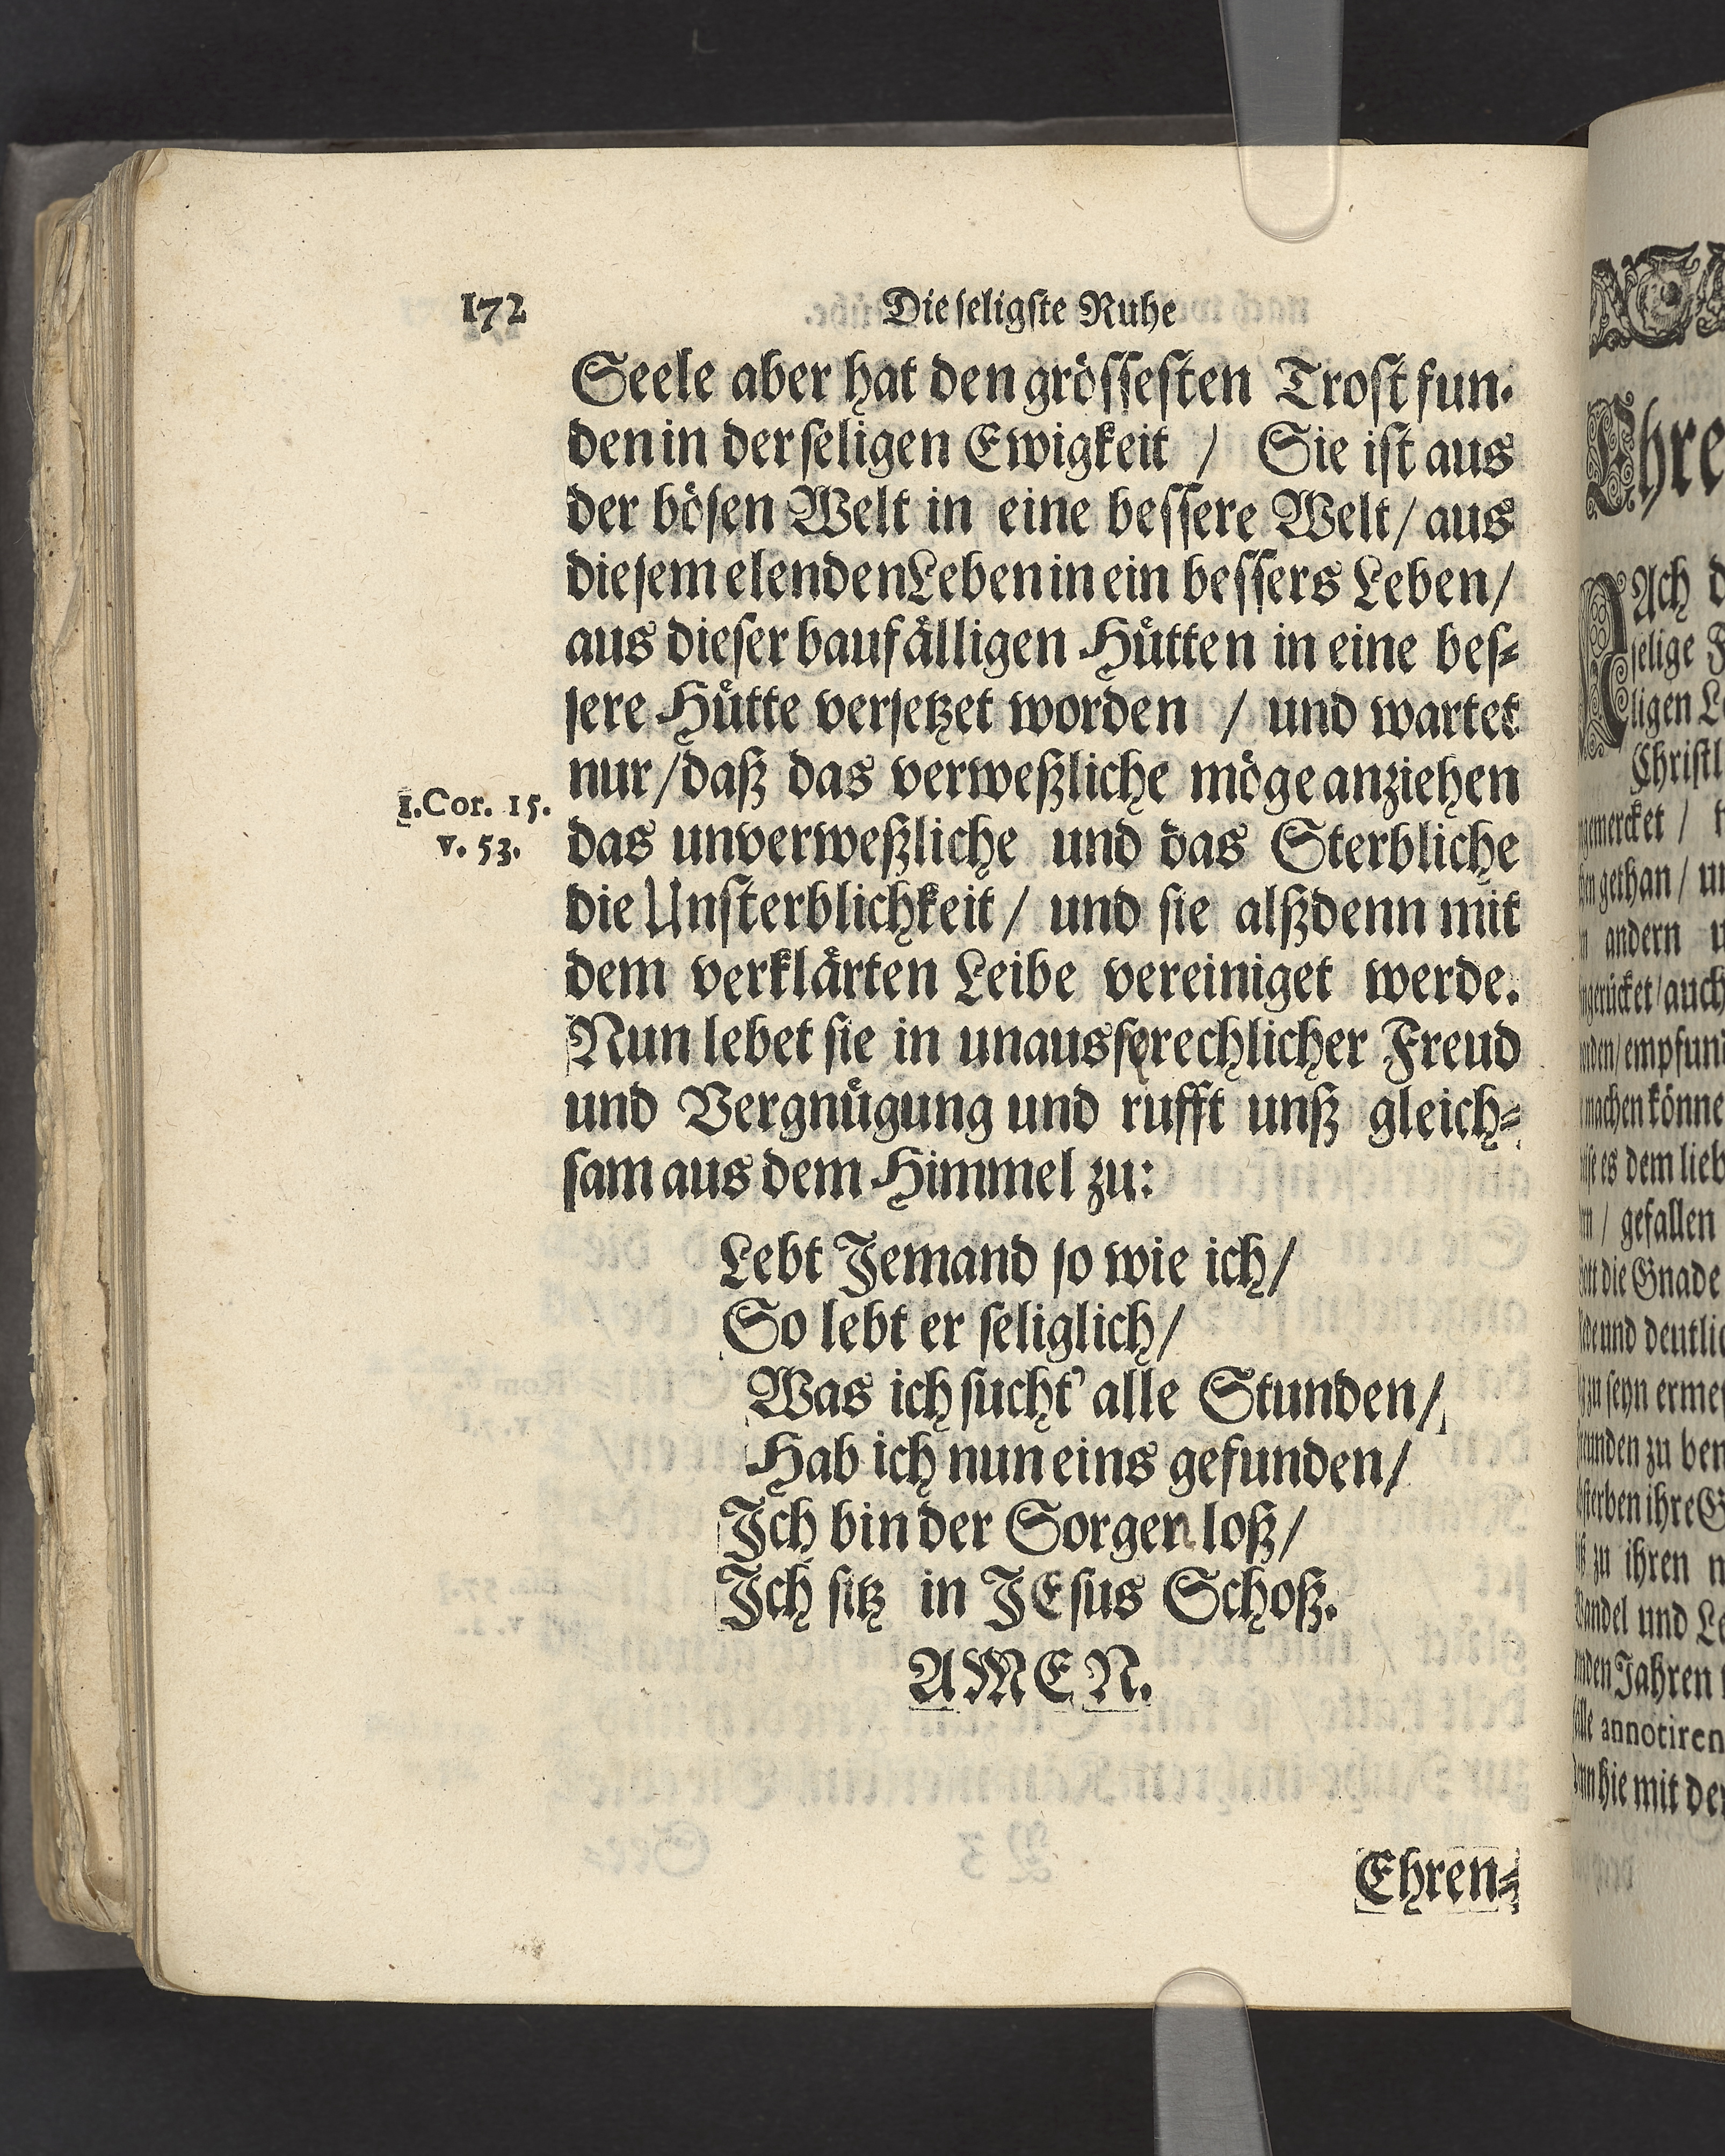 172
Die seligste Ruhe
Seele aber hat den grössesten Trost fun-
den in der seligen Ewigkeit / Sie ist aus
der bösen Welt in eine bessere Welt / aus
diesem elenden Leben in ein bessers Leben /
aus dieser baufälligen Hütten in eine bes-
sere Hütte versetzet worden / und wartet
nur / daß das verweßliche möge anziehen
1. Cor. 15.
v. 53.
das unverweßliche und das Sterbliche
die Unsterblichkeit / und sie alßdenn mit
dem verklärten Leibe vereiniget werde.
Nun lebet sie in unaussprechlicher Freud
und Vergnügung und rufft unß gleich-
sam aus dem Himmel zu:
Lebt Jemand so wie ich /
So lebt er seliglich /
Was ich sucht' alle Stunden /
Hab ich nun eins gefunden /
Ich bin der Sorgen loß /
Ich sitz in JEsus Schoß.
AMEN.
Ehren-
Ach
selige
ligen
gethan /
andern
auch
können
es dem
gefallen
die Gnade
und
zu seyn
zu
ihre
zu ihren
und
Jahren
annotiren
hie mit